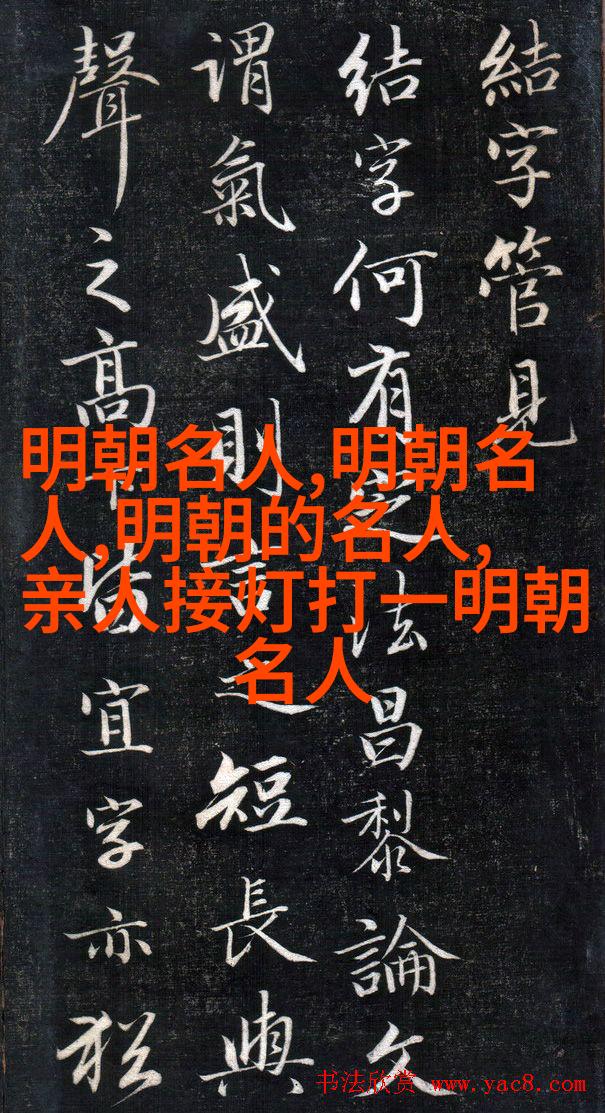 結字管見
結字何有定法昌黎論文
謂氣盛則言之短長與
聲之高下皆宜字亦猶
明朝名人,明朝名
人,明朝的名人,
亲人接灯打一明朝
名人
书法欣赏 www.yac8.com